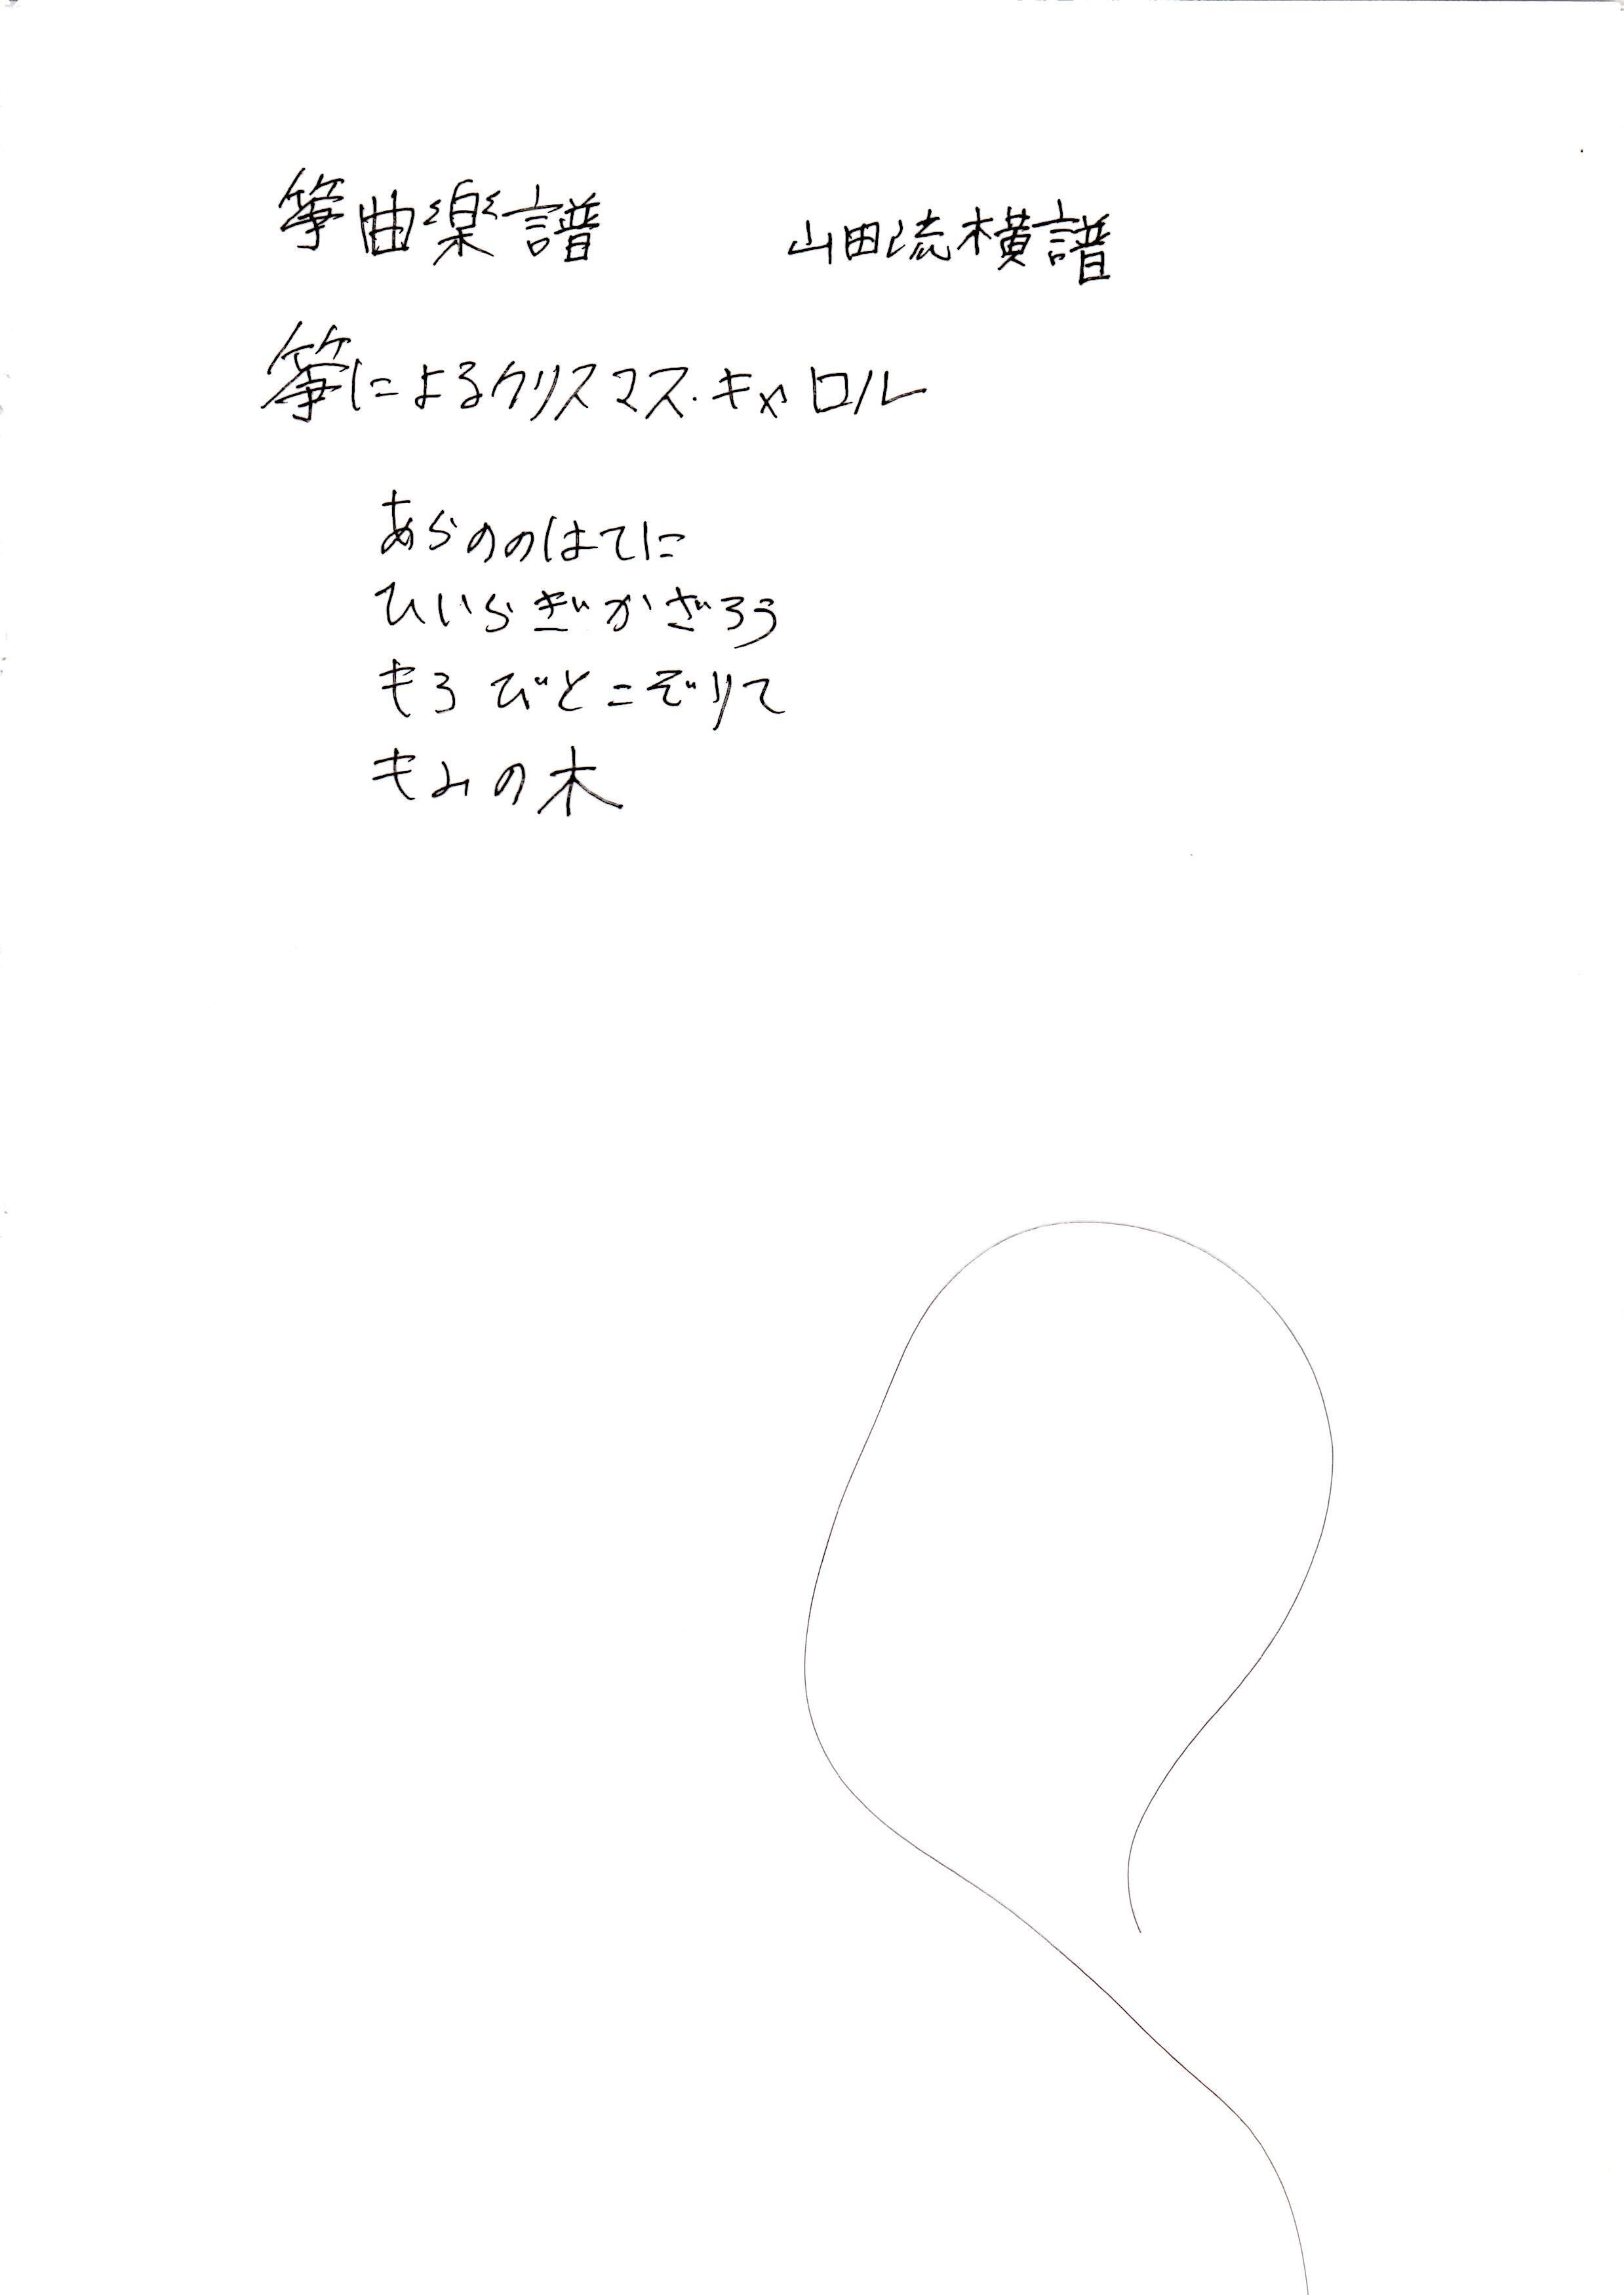 箏曲楽譜 山田流横譜
箏によるクリスマス・キャロル
あらののはてに
ひいらぎかざろう
もろびとこぞりて
もみの木